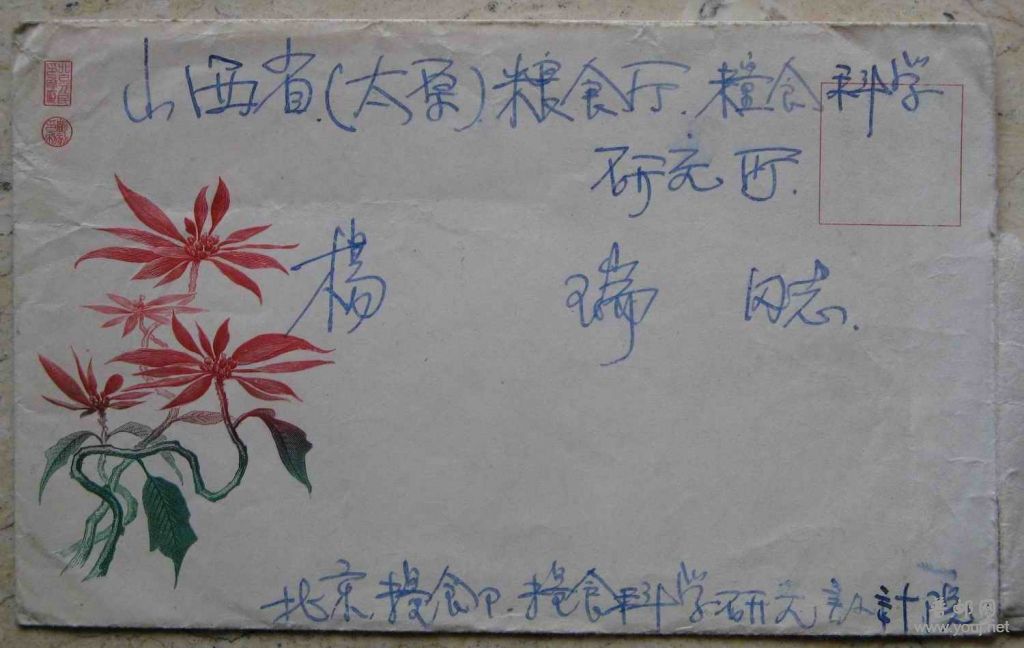 山西省(太原)粮食厅.糧食科学
研究所.
楊 瑞 同志.
北京.糧食P.糧食科学研究設計院
www.youj.net